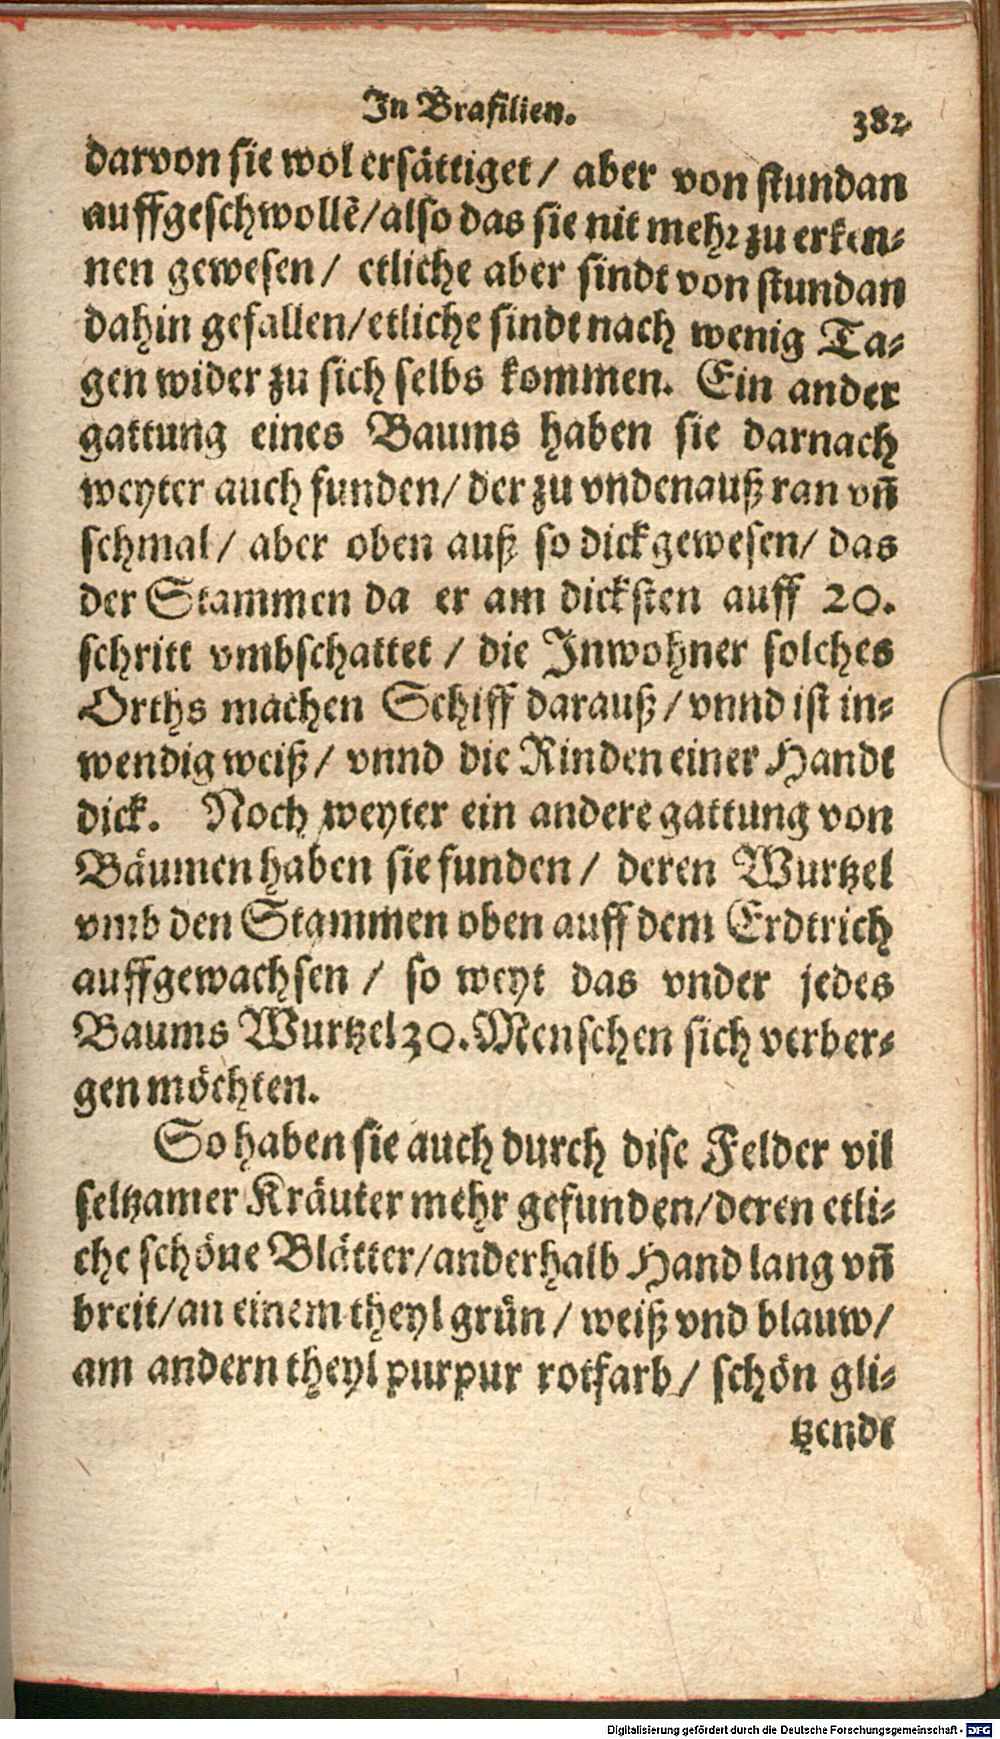 In Brasilien.
382
darvon sie wol ersättiget / aber von stundan
auffgeschwollē/also das sie nit mehr zu erken-
nen gewesen / etliche aber sindt von stundan
dahin gefallen/etliche sindt nach wenig Ta-
gen wider zu sich selbs kommen. Ein ander
gattung eines Baums haben sie darnach
weyter auch funden/ der zu vndenauß ran vñ
schmal/ aber oben auß so dick gewesen/ das
der Stammen da er am dicksten auff 20.
schritt vmbschattet / die Inwohner solches
Orths machen Schiff darauß / vnnd ist in-
wendig weiß / vnnd die Rinden einer Handt
dick. Noch weyter ein andere gattung von
Bäumen haben sie funden / deren Wurtzel
vmb den Stammen oben auff dem Erdtrich
auffgewachsen / so weyt das vnder jedes
Baums Wurtzel 30. Menschen sich verber-
gen möchten.
So haben sie auch durch dise Felder vil
seltzamer Kräuter mehr gefunden/deren etli-
che schöne Blätter/anderhalb Hand lang vñ
breit/an einem theyl grün / weiß vnd blauw/
am andern theyl purpur rotfarb / schön gli-
tzendt
Digitalisierung gefördert durch die Deutsche Forschungsgemeinschaft - DFG